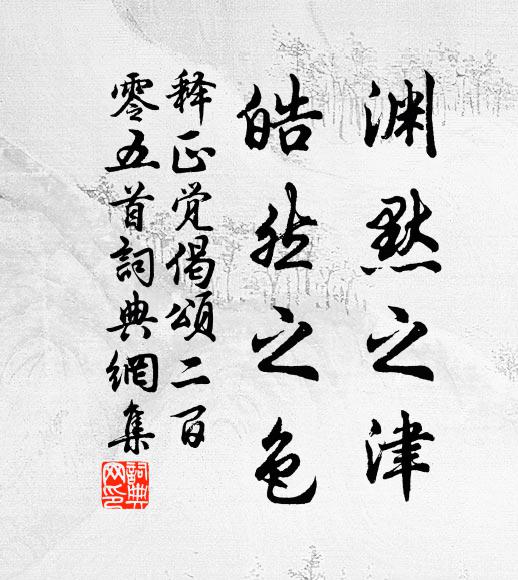 渊默之津
皓然之色
释正觉偈颂二百
零五首詞典網集
詞典网印